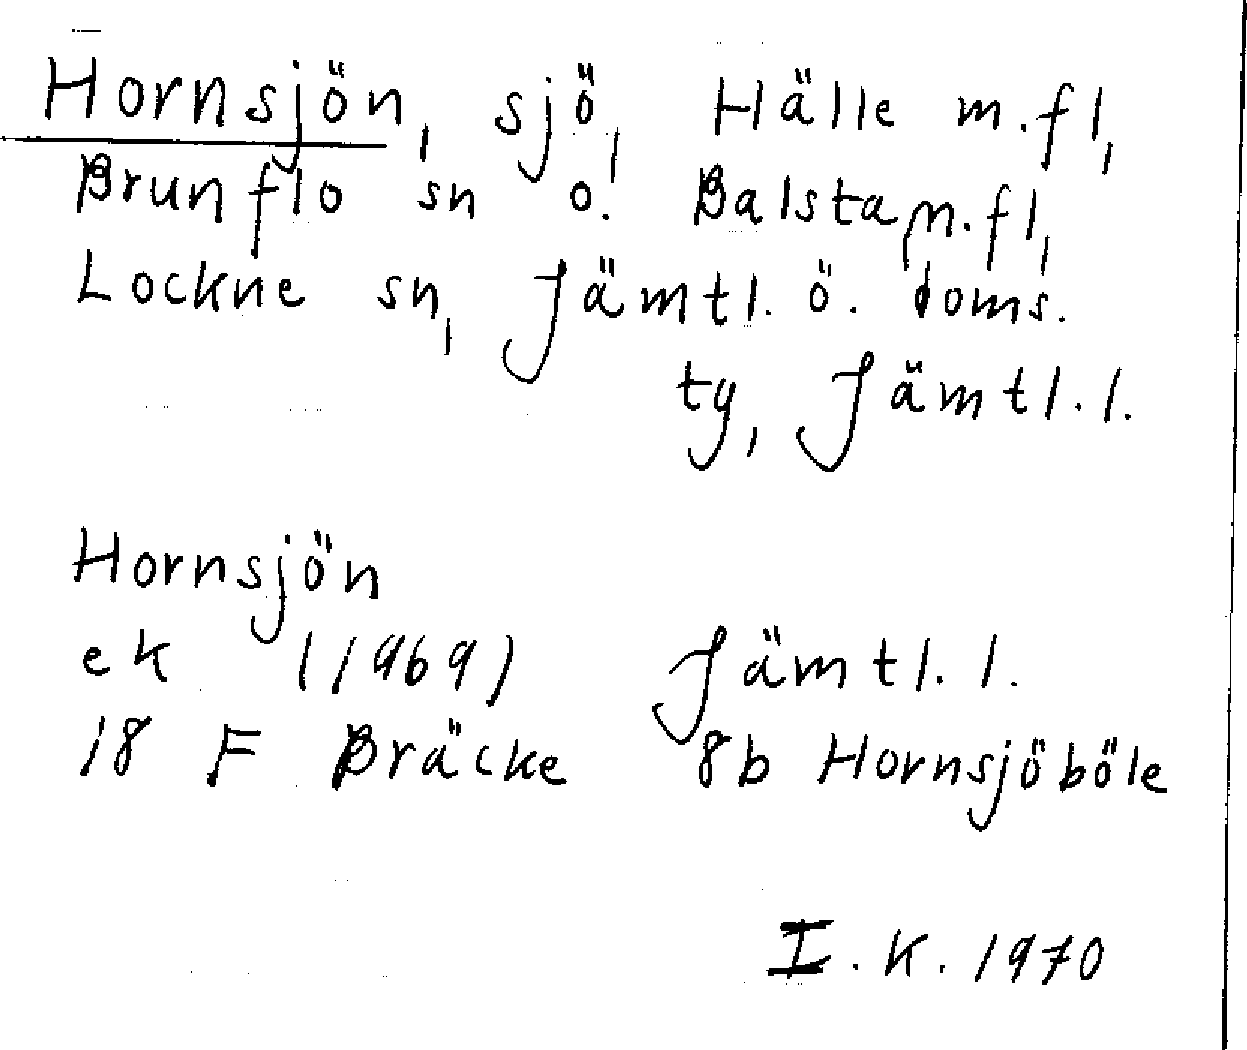 Hornsjön, sjö, Hälle m.fl,
Brunflo sn o. Balsta m.fl,
Lockne sn, Jämtl. ö. doms.
tg, Jämtl.l.
Hornsjön
ek (1969) Jämtl.l.
18 F Bräcke 8b Hornsjöböle
I.K. 1970